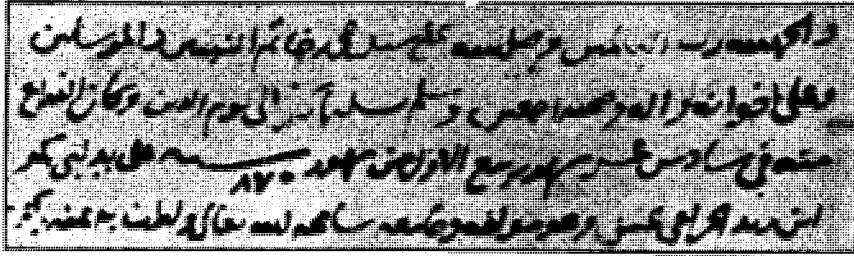 والحمد لله رب العالمين وصلى الله على سيدنا محمد خاتم النبيين والمرسلين
وعلى اخوانه واله وصحبه اجمعين وسلم تسليما الى يوم الدين وكان الفراغ
منه في سادس عشر شهور ربيع الاول من شهور سنه ٨٧٠ على يد
وهو مولفه سامحه الله تعالى ولطف به